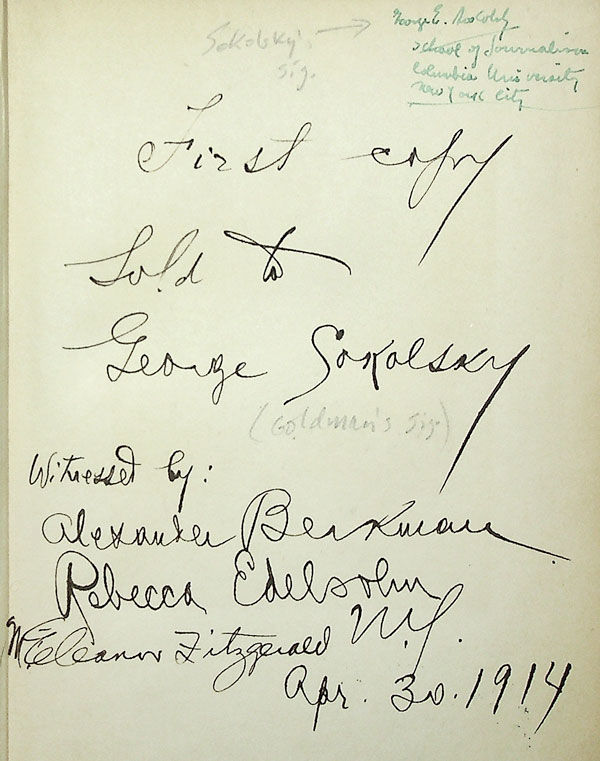 Sokolsky's
sig.
George E. Sokolsky
School of Journalism
Columbia University
New York City
First copy
Sold to
George Sokolsky
(Goldman's sig.)
Witnessed by:
Alexander Berkman
Rebecca Edelsohn
M. Eleanor Fitzgerald N.Y.
Apr. 30. 1914